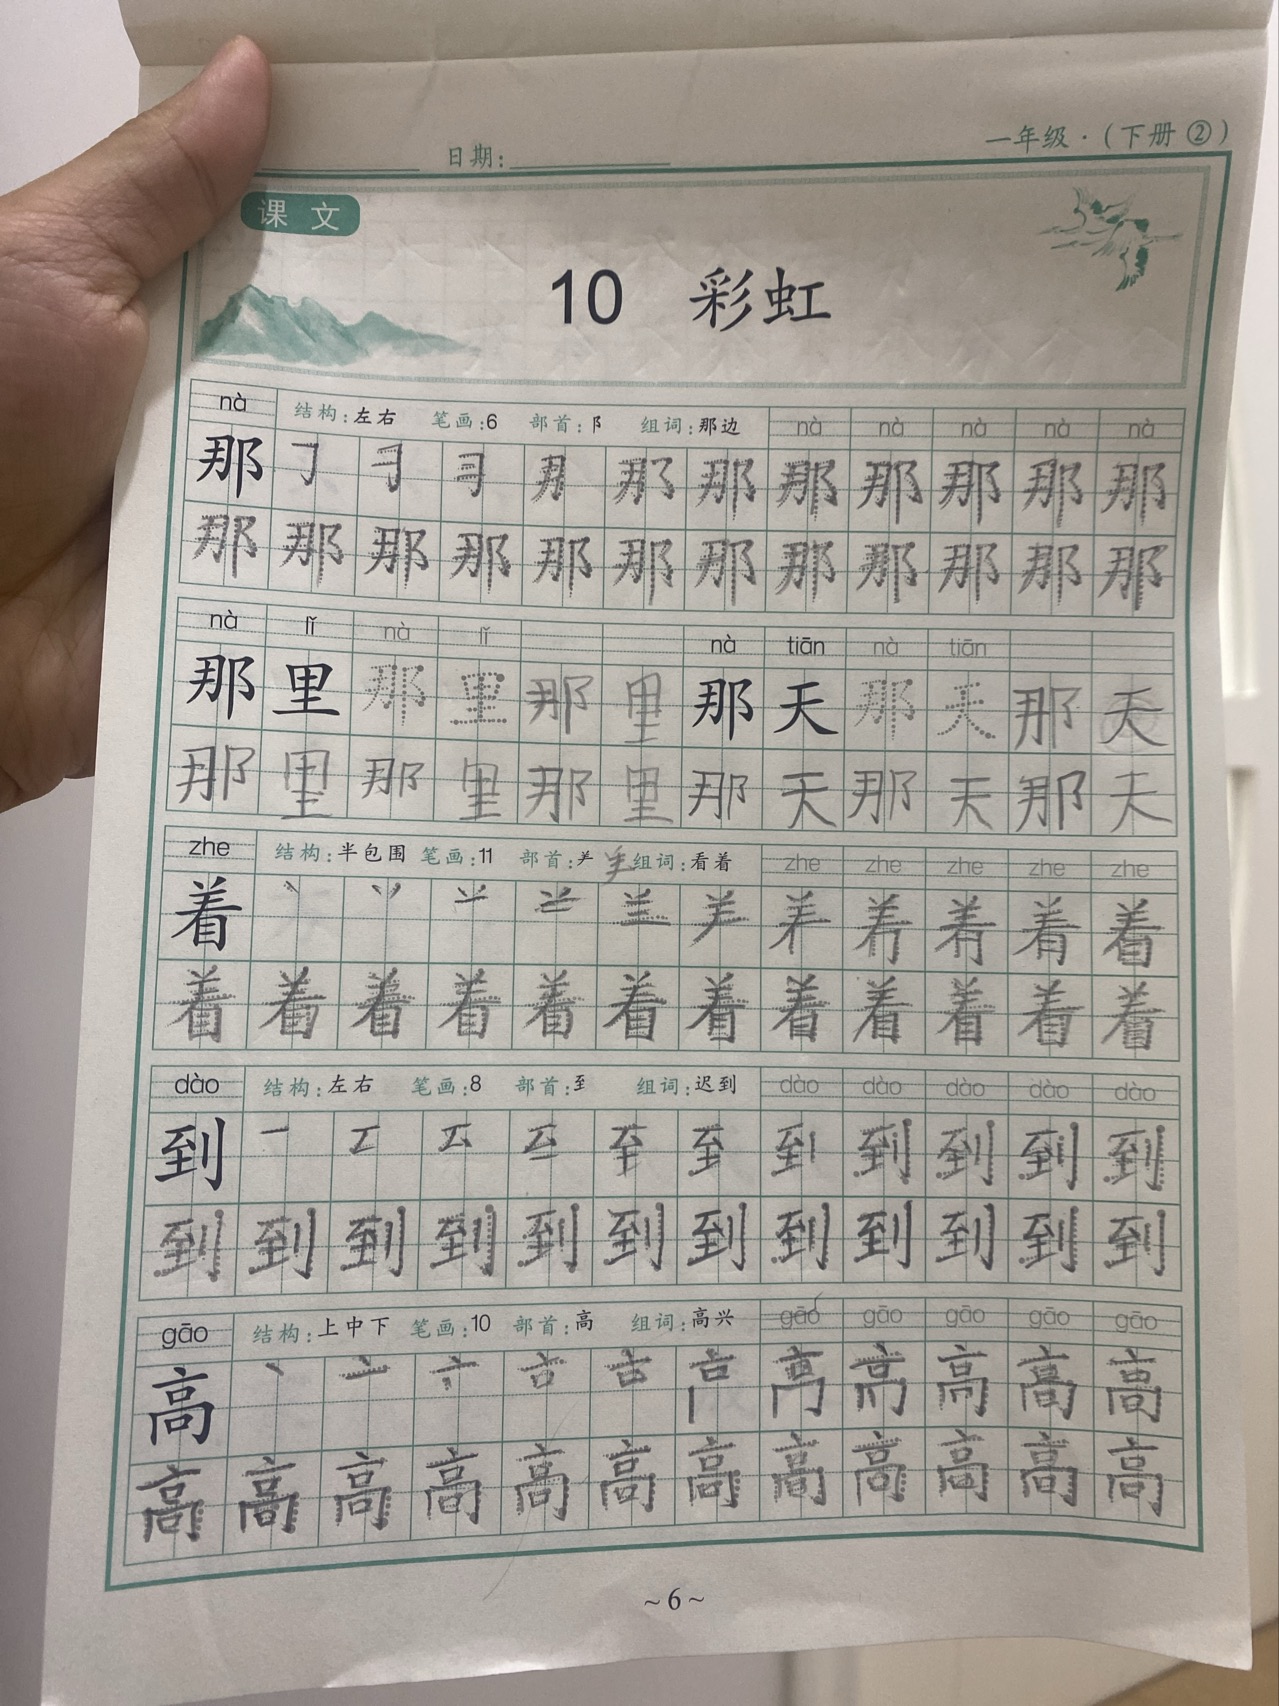 日期: 一年级·(下册②)
课文
10 彩虹
nà 结构:左右 笔画:6 部首:阝 组词:那边 nà nà nà nà nà
那 那 那 那 那 那 那 那
那 那 那 那 那 那 那 那 那 那 那 那
nà lǐ nà lǐ nà tiān nà tiān
那 里 那 里 那 里 那 天 那 天 那 天
那 里 那 里 那 里 那 天 那 天 那 天
zhe 结构:半包围 笔画:11 部首:⺶ 组词:看着 zhe zhe zhe zhe zhe
着 丶 着
着 着 着 着 着 着 着 着 着 着 着 着
dào 结构:左右 笔画:8 部首:至 组词:迟到 dào dào dào dào dào
到 一 至 到 到 到 到
到 到 到 到 到 到 到 到 到 到 到 到
gāo 结构:上中下 笔画:10 部首:高 组词:高兴 gāo gāo gāo gāo gāo
高 丶 亠 高 高 高
高 高 高 高 高 高 高 高 高 高 高 高
~6~